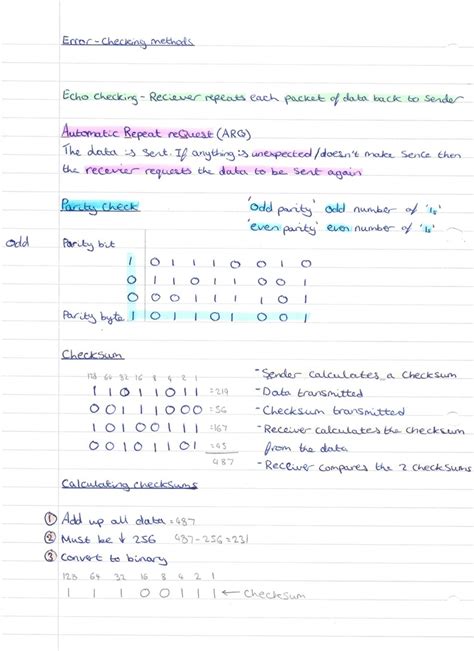 Error-Checking methods
Echo Checking - Reciever repeats each packet of data back to Sender
Automatic Repeat reQuest (ARQ)
The data is sent. If anything is unexpected/doesn't make sence then
the recevier requests the data to be sent again
Parity Check 'odd parity' odd number of '1s'
'even parity' even number of '1s'
odd Parity bit
1 0 1 1 1 0 0 1 0
0 1 1 0 1 1 0 0 1
0 0 0 1 1 1 1 0 1
Parity byte 1 0 1 1 0 1 0 0 1
Checksum
128 64 32 16 8 4 2 1 - Sender calculates a Checksum
1 1 0 1 1 0 1 1 = 219 - Data transmitted
0 0 1 1 1 0 0 0 = 56 - Checksum transmitted
1 0 1 0 0 1 1 1 = 167 - Receiver calculates the checksum
0 0 1 0 1 1 0 1 = 45 from the data
487 - Receiver compares the 2 checksums
Calculating checksums
1 Add up all data = 487
2 Must be ↓ 256 487-256=231
3 Convert to binary
128 64 32 16 8 4 2 1
1 1 1 0 0 1 1 1 ← Checksum